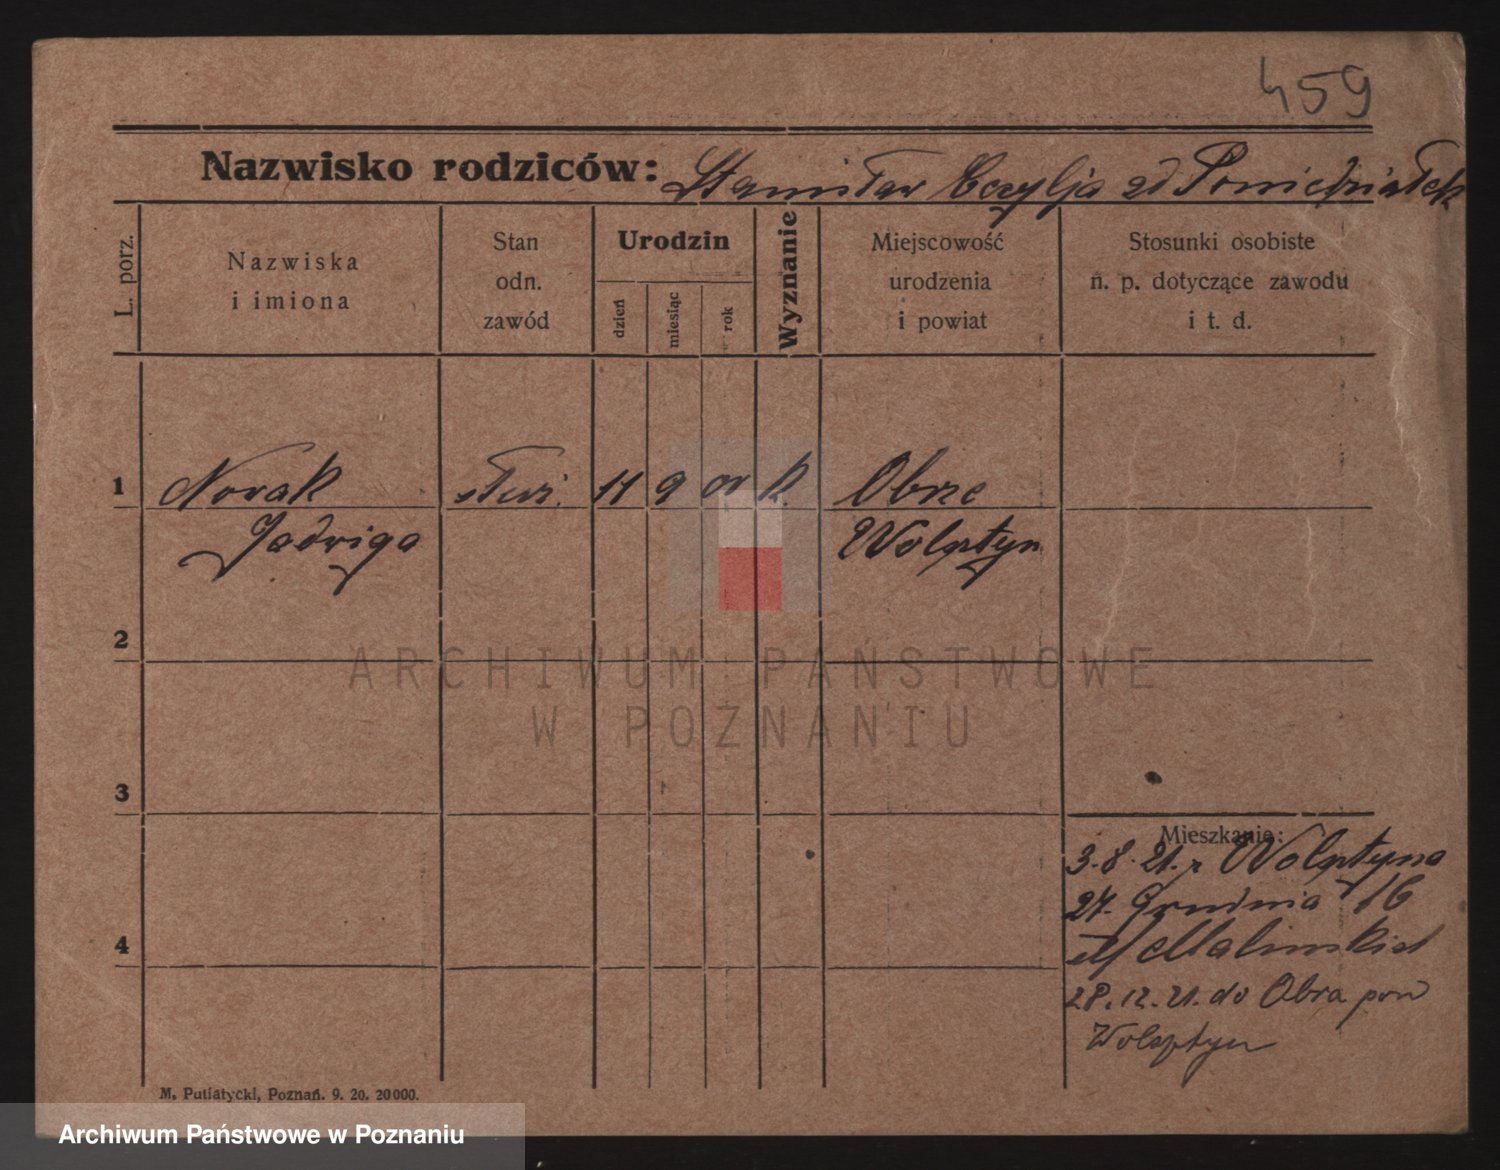 459
Nazwisko rodziców: Stanisław Cecylja zd Poniedziałek
L. porz.
Nazwiska
i imiona
Stan
odn.
zawód
Urodzin
dzień
miesiąc
rok
Wyznanie
Miejscowość
urodzenia
i powiat
Stosunki osobiste
n. p. dotyczące zawodu
i t. d.
1 Nowak służ. 11 9 01 k. Obrze
Jadwiga Wolsztyn
2
ARCHIWUM PAŃSTWOWE
W POZNANIU
3
Mieszkanie:
3.8.21. z Wolsztyna
27. Grudnia 16
Malinskich
4
28.12.21. do Obra pow
Wolsztyn
M. Putiatycki, Poznań. 9. 20. 20000.
Archiwum Państwowe w Poznaniu